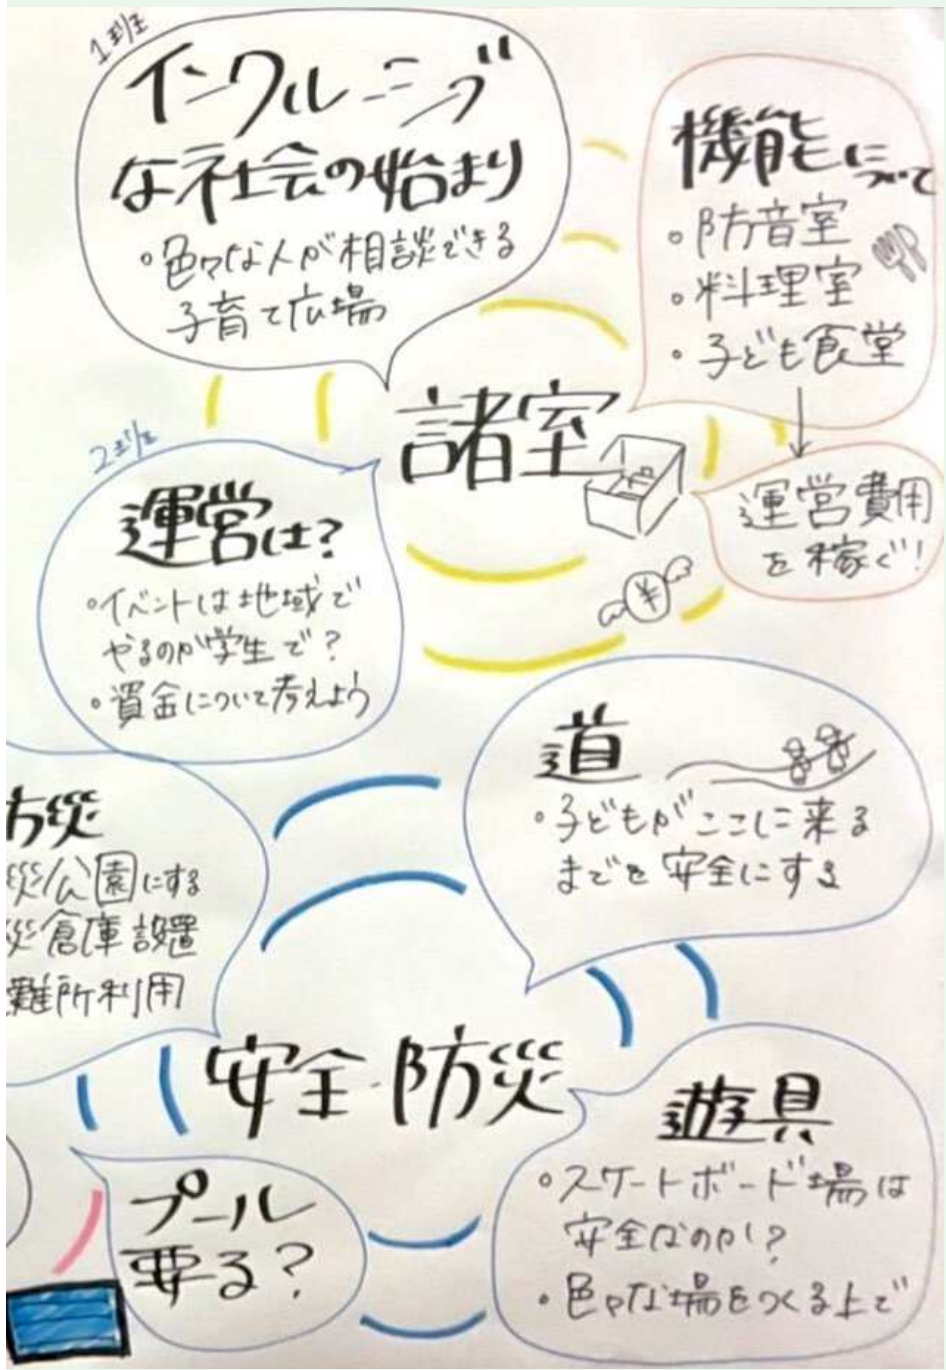 1班
インクルーシブ
な社会の始まり
・色々な人が相談できる
子育て広場
機能について
・防音室
・料理室
・子ども食堂
運営費用
を稼ぐ!
諸室
2班
運営は?
・イベントは地域で
やるのか学生で?
・資金について考えよう
¥
道
・子どもがここに来る
までを安全にする
防災
災公園にする
災倉庫設置
難所利用
安全・防災
遊具
・スケートボード場は
安全なのか?
・色々な場をつくる上で
プール
要る?